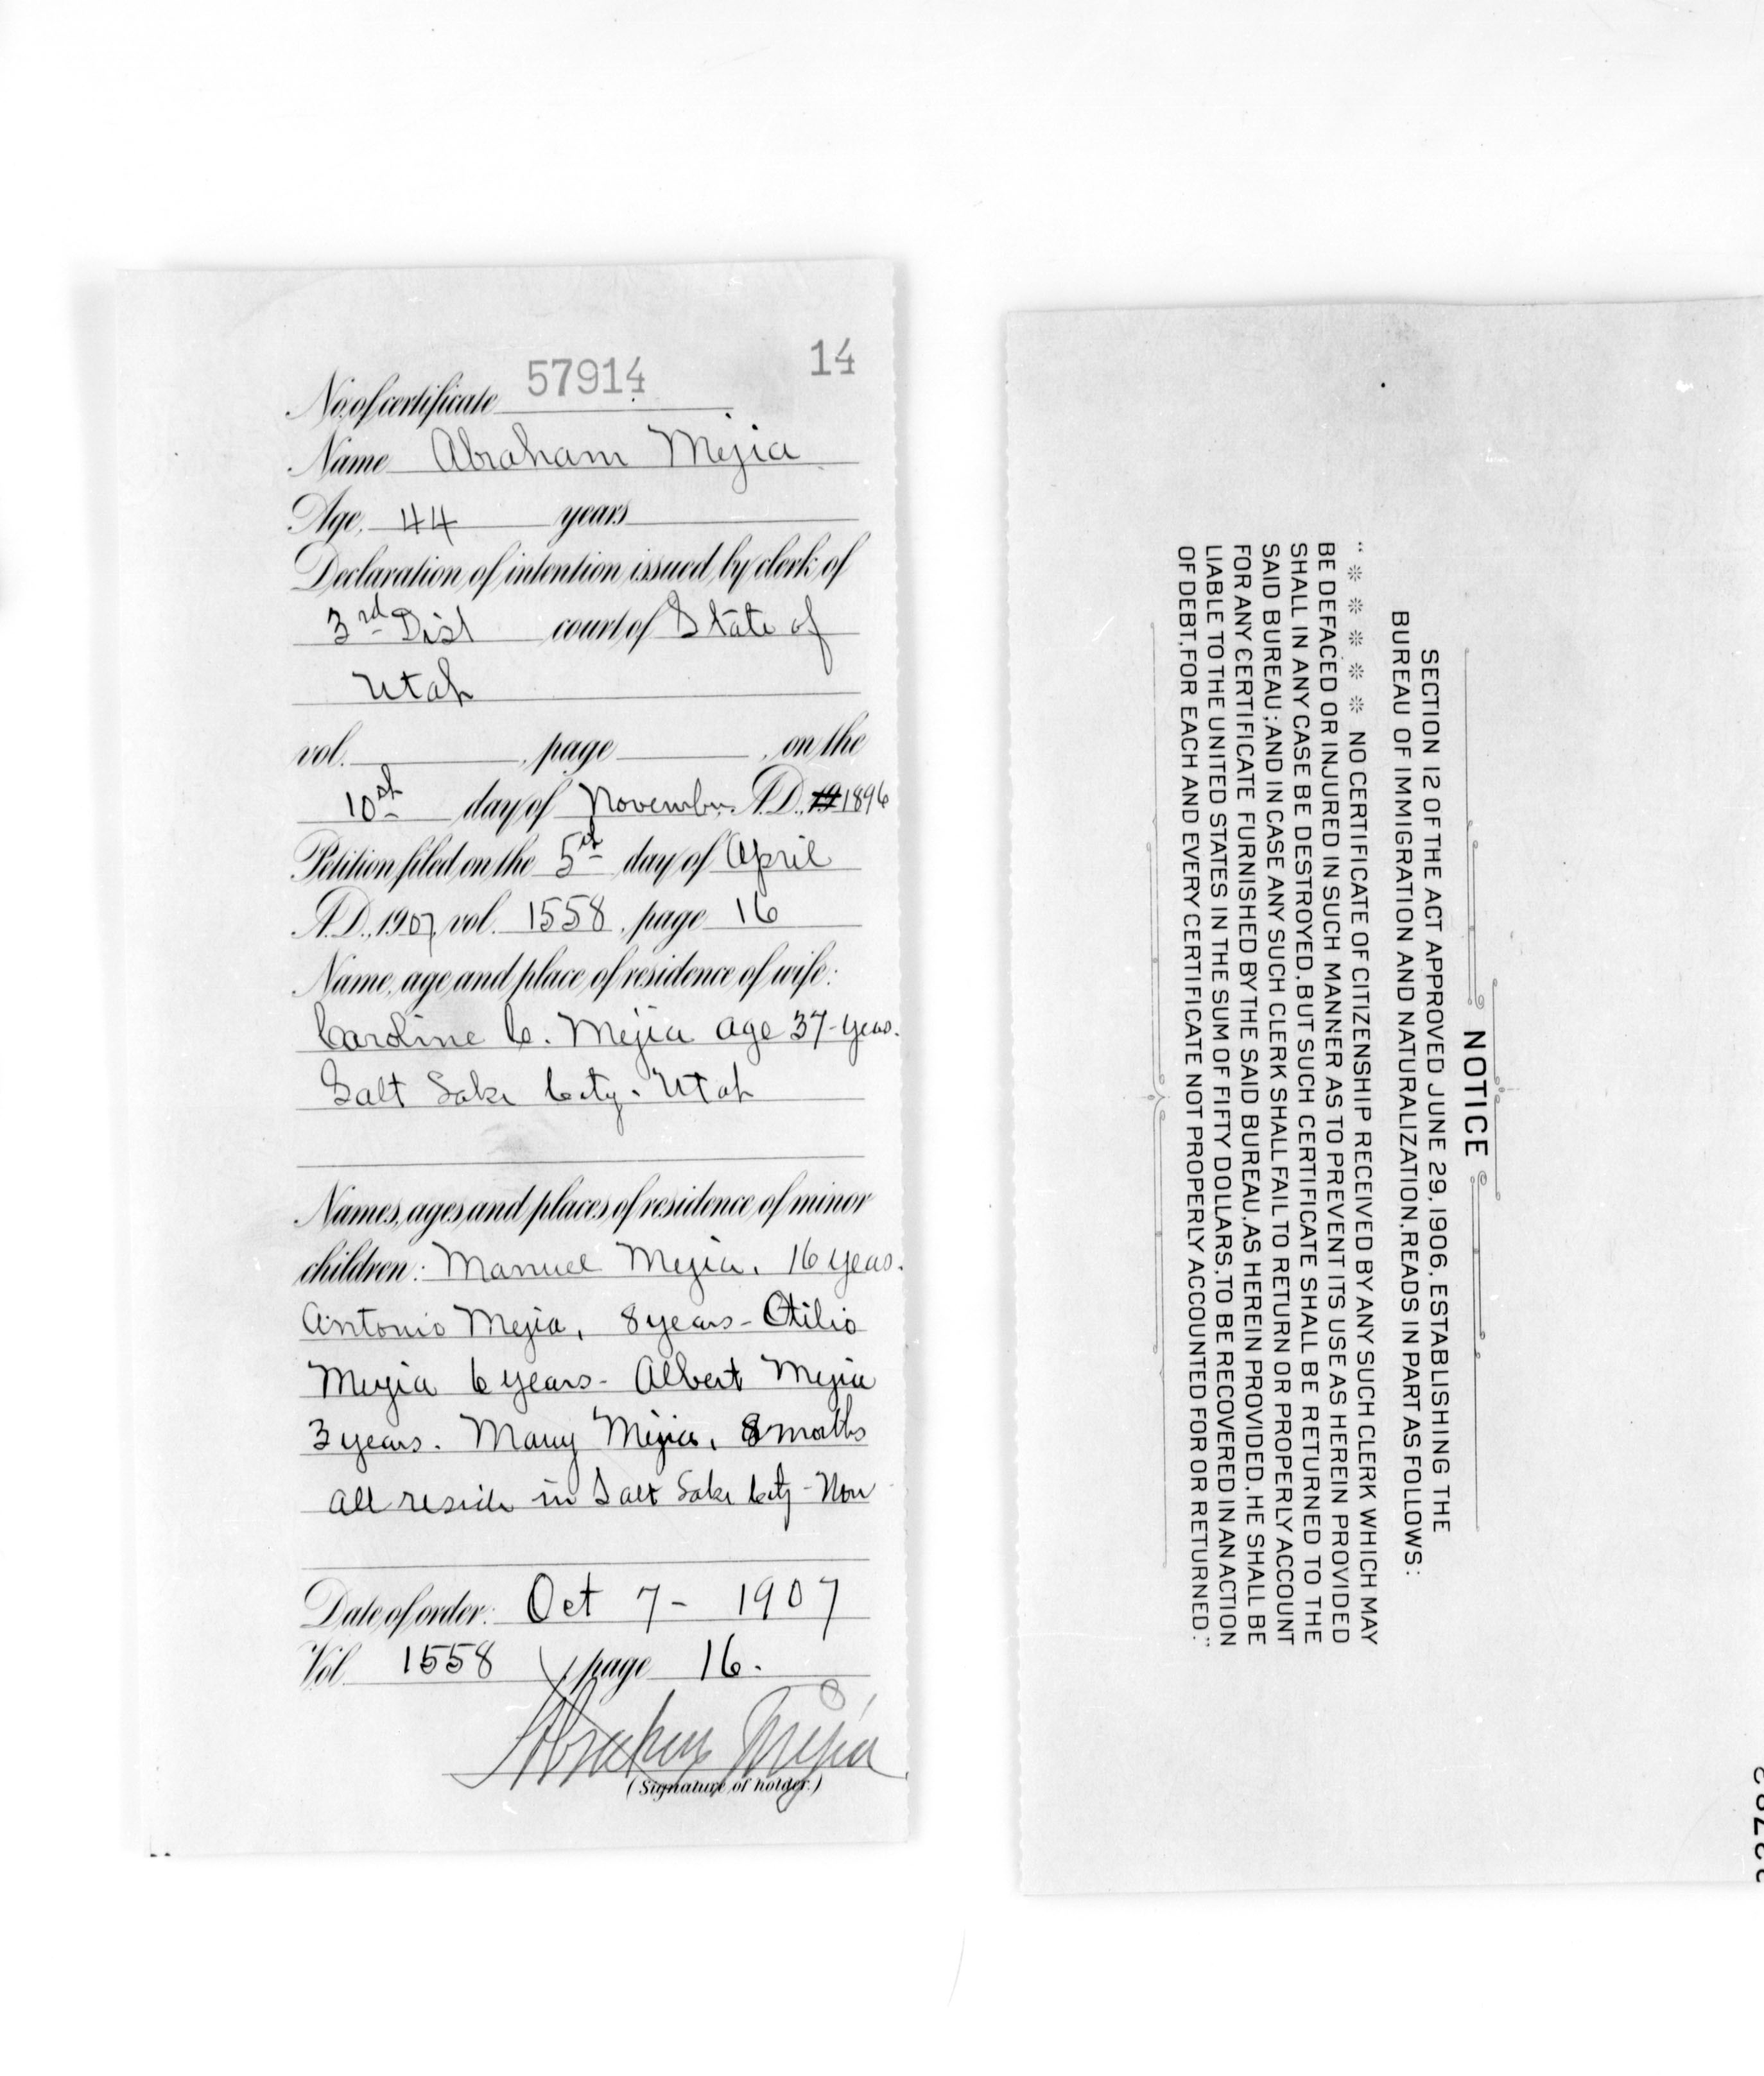 14
No. of certificate 57914
Name Abraham Mejia
Age, 44 years
Declaration of intention issued by clerk of
3rd Dist court of State of
Utah
vol. , page , on the
10th day of November A.D., 19 1896
Petition filed on the 5th day of April
A.D., 1907, vol. 1558, page 16
Name, age and place of residence of wife:
Caroline C. Mejia age 37 years.
Salt Lake City. Utah
Names, ages and places of residence of minor
children: Manuel Mejia. 16 years.
Antonio Mejia, 8 years - Otilio
Mejia 6 years - Albert Mejia
3 years. Mary Mejia, 8 months
all reside in Salt Lake City - Now
Date of order: Oct 7 - 1907
Vol. 1558, page 16.
Abraham Mejia
(Signature of holder.)
NOTICE
SECTION 12 OF THE ACT APPROVED JUNE 29, 1906, ESTABLISHING THE
BUREAU OF IMMIGRATION AND NATURALIZATION, READS IN PART AS FOLLOWS:
" * * * * * NO CERTIFICATE OF CITIZENSHIP RECEIVED BY ANY SUCH CLERK WHICH MAY
BE DEFACED OR INJURED IN SUCH MANNER AS TO PREVENT ITS USE AS HEREIN PROVIDED
SHALL IN ANY CASE BE DESTROYED, BUT SUCH CERTIFICATE SHALL BE RETURNED TO THE
SAID BUREAU; AND IN CASE ANY SUCH CLERK SHALL FAIL TO RETURN OR PROPERLY ACCOUNT
FOR ANY CERTIFICATE FURNISHED BY THE SAID BUREAU, AS HEREIN PROVIDED, HE SHALL BE
LIABLE TO THE UNITED STATES IN THE SUM OF FIFTY DOLLARS, TO BE RECOVERED IN AN ACTION
OF DEBT, FOR EACH AND EVERY CERTIFICATE NOT PROPERLY ACCOUNTED FOR OR RETURNED."